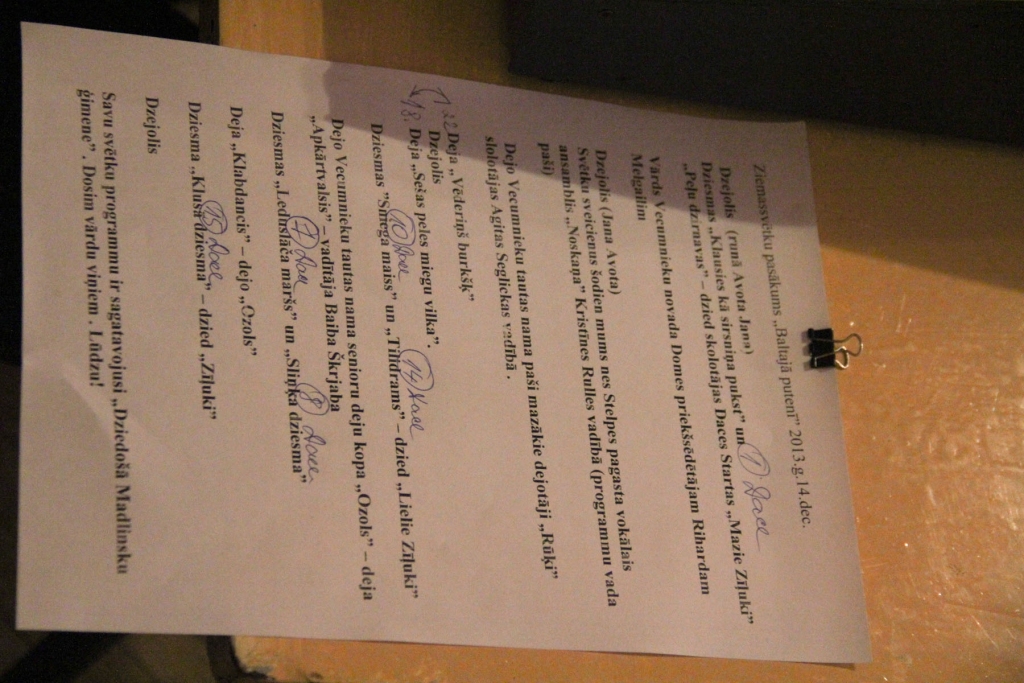 Ziemassvētku pasākums „Baltajā putenī” 2013.g.14.dec.
Dzejolis (runā Avota Jana)
Dziesmas „Klausies kā sirsniņa pukst” un ① Dace
„Peļu dzirnavas” – dzied skolotājas Daces Startas „Mazie Zīļuki”
Vārds Vecumnieku novada Domes priekšsēdētājam Rihardam
Melgailim
Dzejolis (Jana Avota)
Svētku sveicienus šodien mums nes Stelpes pagasta vokālais
ansamblis „Noskaņa” Kristīnes Rulles vadībā (programmu vada
paši)
Dejo Vecumnieku tautas nama paši mazākie dejotāji „Rūķi”
skolotājas Agitas Seglickas vadībā .
22 Deja „Vēderiņš burkšķ”
Dzejolis
18. Deja „Sešas peles miegu vilka”.
⑩ Dace ⑭ Dace
Dziesmas ”Sniega maiss” un „Tilidrams” – dzied „Lielie Zīļuki”
Dejo Vecumnieku tautas nama senioru deju kopa „Ozols” – deja
„Apkārtvalsis” – vadītāja Baiba Škrjaba
⑦ Dace ⑧ Dace
Dziesmas „Leduslāča maršs” un „Sliņķa dziesma”
Deja „Klabdancis” – dejo „Ozols”
⑮ Dace
Dziesma „Klusā dziesma” – dzied „Zīļuki”
Dzejolis
Savu svētku programmu ir sagatavojusi „Dziedošā Madlinsku
ģimene” . Dosim vārdu viņiem . Lūdzu!